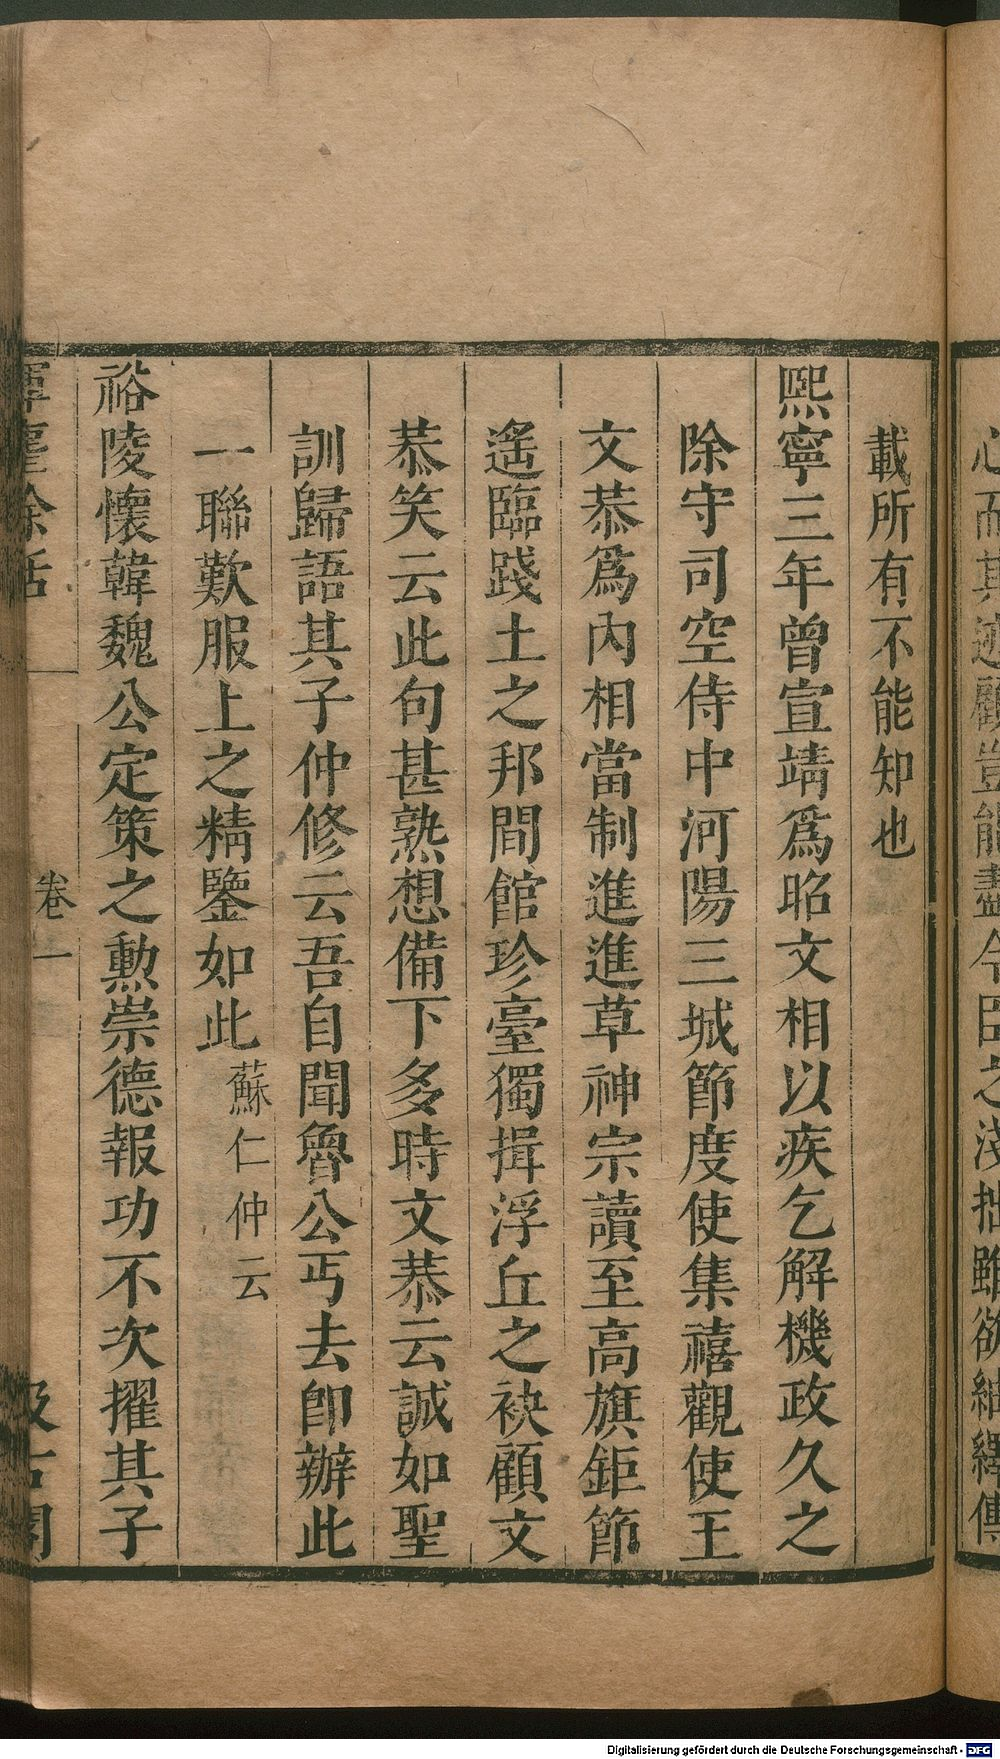 心而其迹顧豈能盡令臣之淺拙雖欲紬繹傳
載所有不能知也
熙寧三年曾宣靖爲昭文相以疾乞解機政久之
除守司空侍中河陽三城節度使集禧觀使王
文恭爲內相當制進進草神宗讀至高旗鉅節
遙臨踐土之邦間館珍臺獨揖浮丘之袂顧文
恭笑云此句甚熟想備下多時文恭云誠如聖
訓歸語其子仲修云吾自聞魯公丐去卽辦此
一聯歎服上之精鑒如此蘇仁仲云
裕陵懷韓魏公定策之勲崇德報功不次擢其子
揮麈餘話 卷一 汲古閣
Digitalisierung gefördert durch die Deutsche Forschungsgemeinschaft - DFG